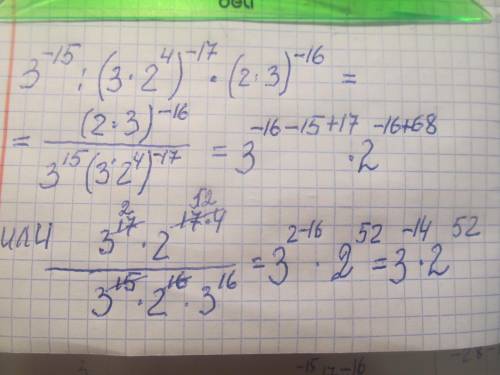 deli
3^{-15} : (3·2^4)^{-17} · (2·3)^{-16} =
= \frac{(2·3)^{-16}}{3^{15}(3·2^4)^{-17}} = 3^{-16-15+17} · 2^{-16+68}
или \frac{3^{17}·2^{17·4}}{3^{15}·2^{16}·3^{16}} = 3^{2-16} · 2^{52} = 3^{-14}·2^{52}